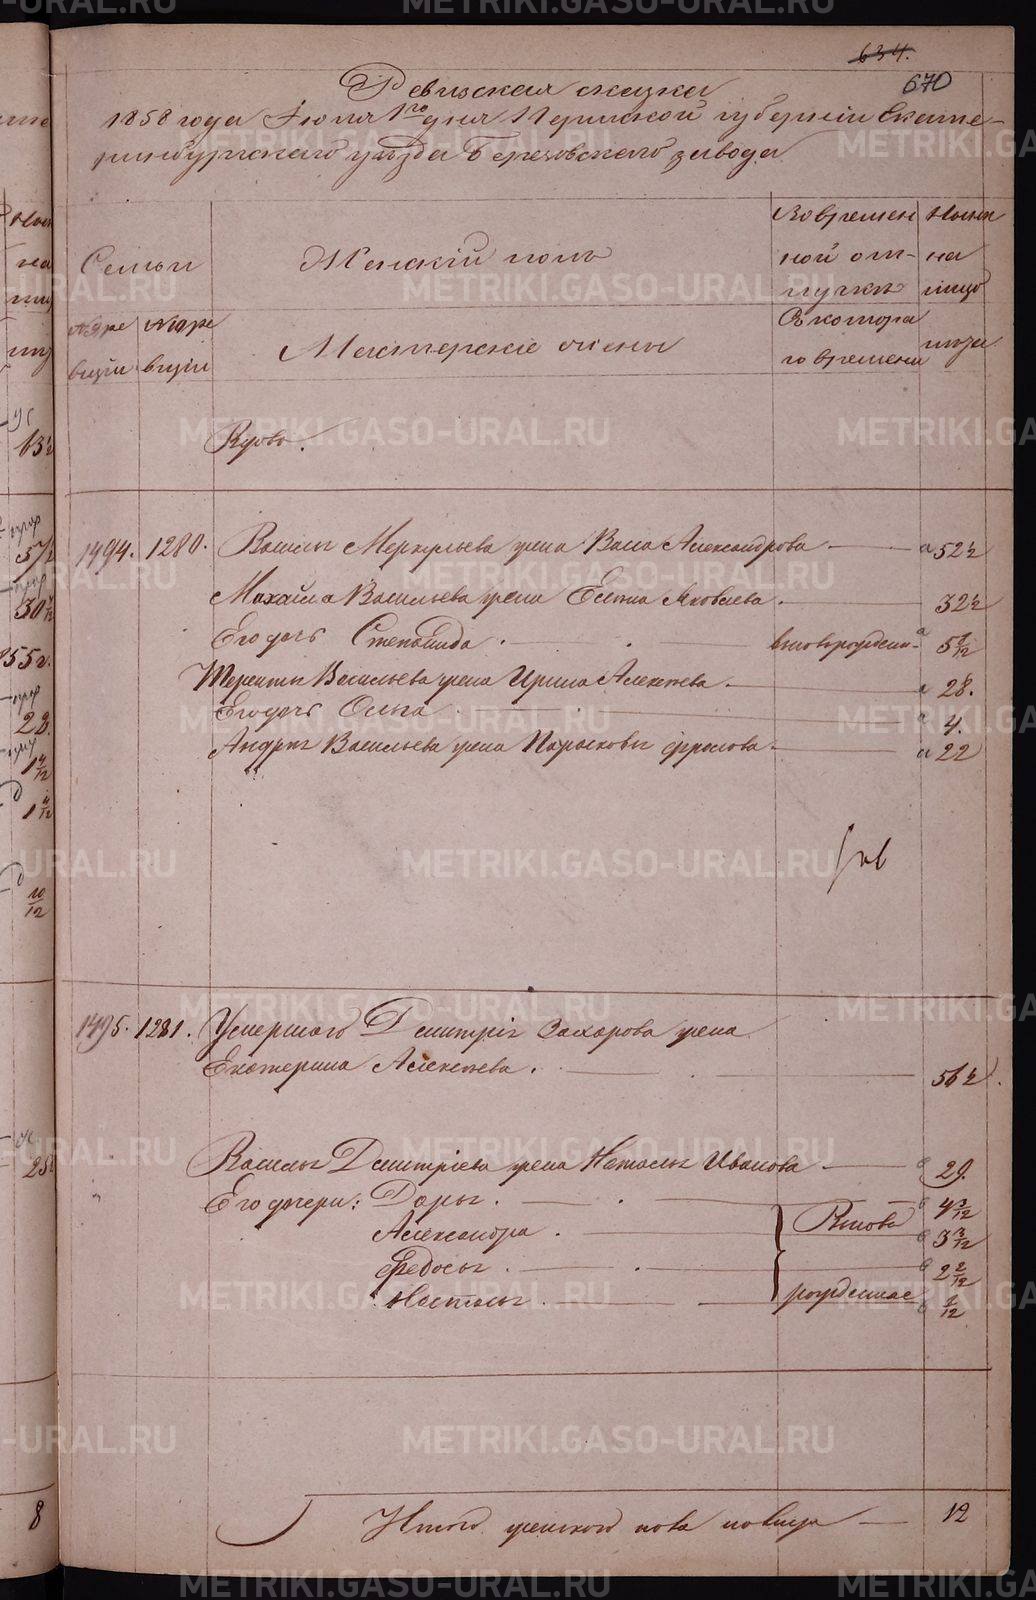 634.
670
Ревизская сказка
1858 года Июня 1го дня Пермской губернии Екате-
ринбургского уѣзда Березовского завода
Семьи
Женскій полъ
Во времен
ной от-
лучкѣ
Ныни
на
лицо
№ по ре
визіи
№ по ре
визіи
Мастерскіе жены
В котора
го времени
лѣта
Вдова.
1494. 1280. Василья Меркурьева жена Васса Александрова 52½
Михайла Васильева жена Елена Яковлева. 32½
Его дочь Степанида вновьрожден. 5 2/12
Терентья Васильева жена Ирина Алексеева. 28.
Его дочь Ольга 4.
Андрея Васильева жена Парасковья Фролова 22
1495. 1281. Умершаго Дмитрія Захарова жена
Екатерина Алексеева. 56½
Василья Дмитріева жена Наталья Иванова 29.
Его дочери: Дарья. 4 3/12
Александра. Вновь 3 3/12
Федосья. 2 2/12
Настасья рожденные 2/12
Итого женского пола на лицо 12
METRIKI.GASO-URAL.RU